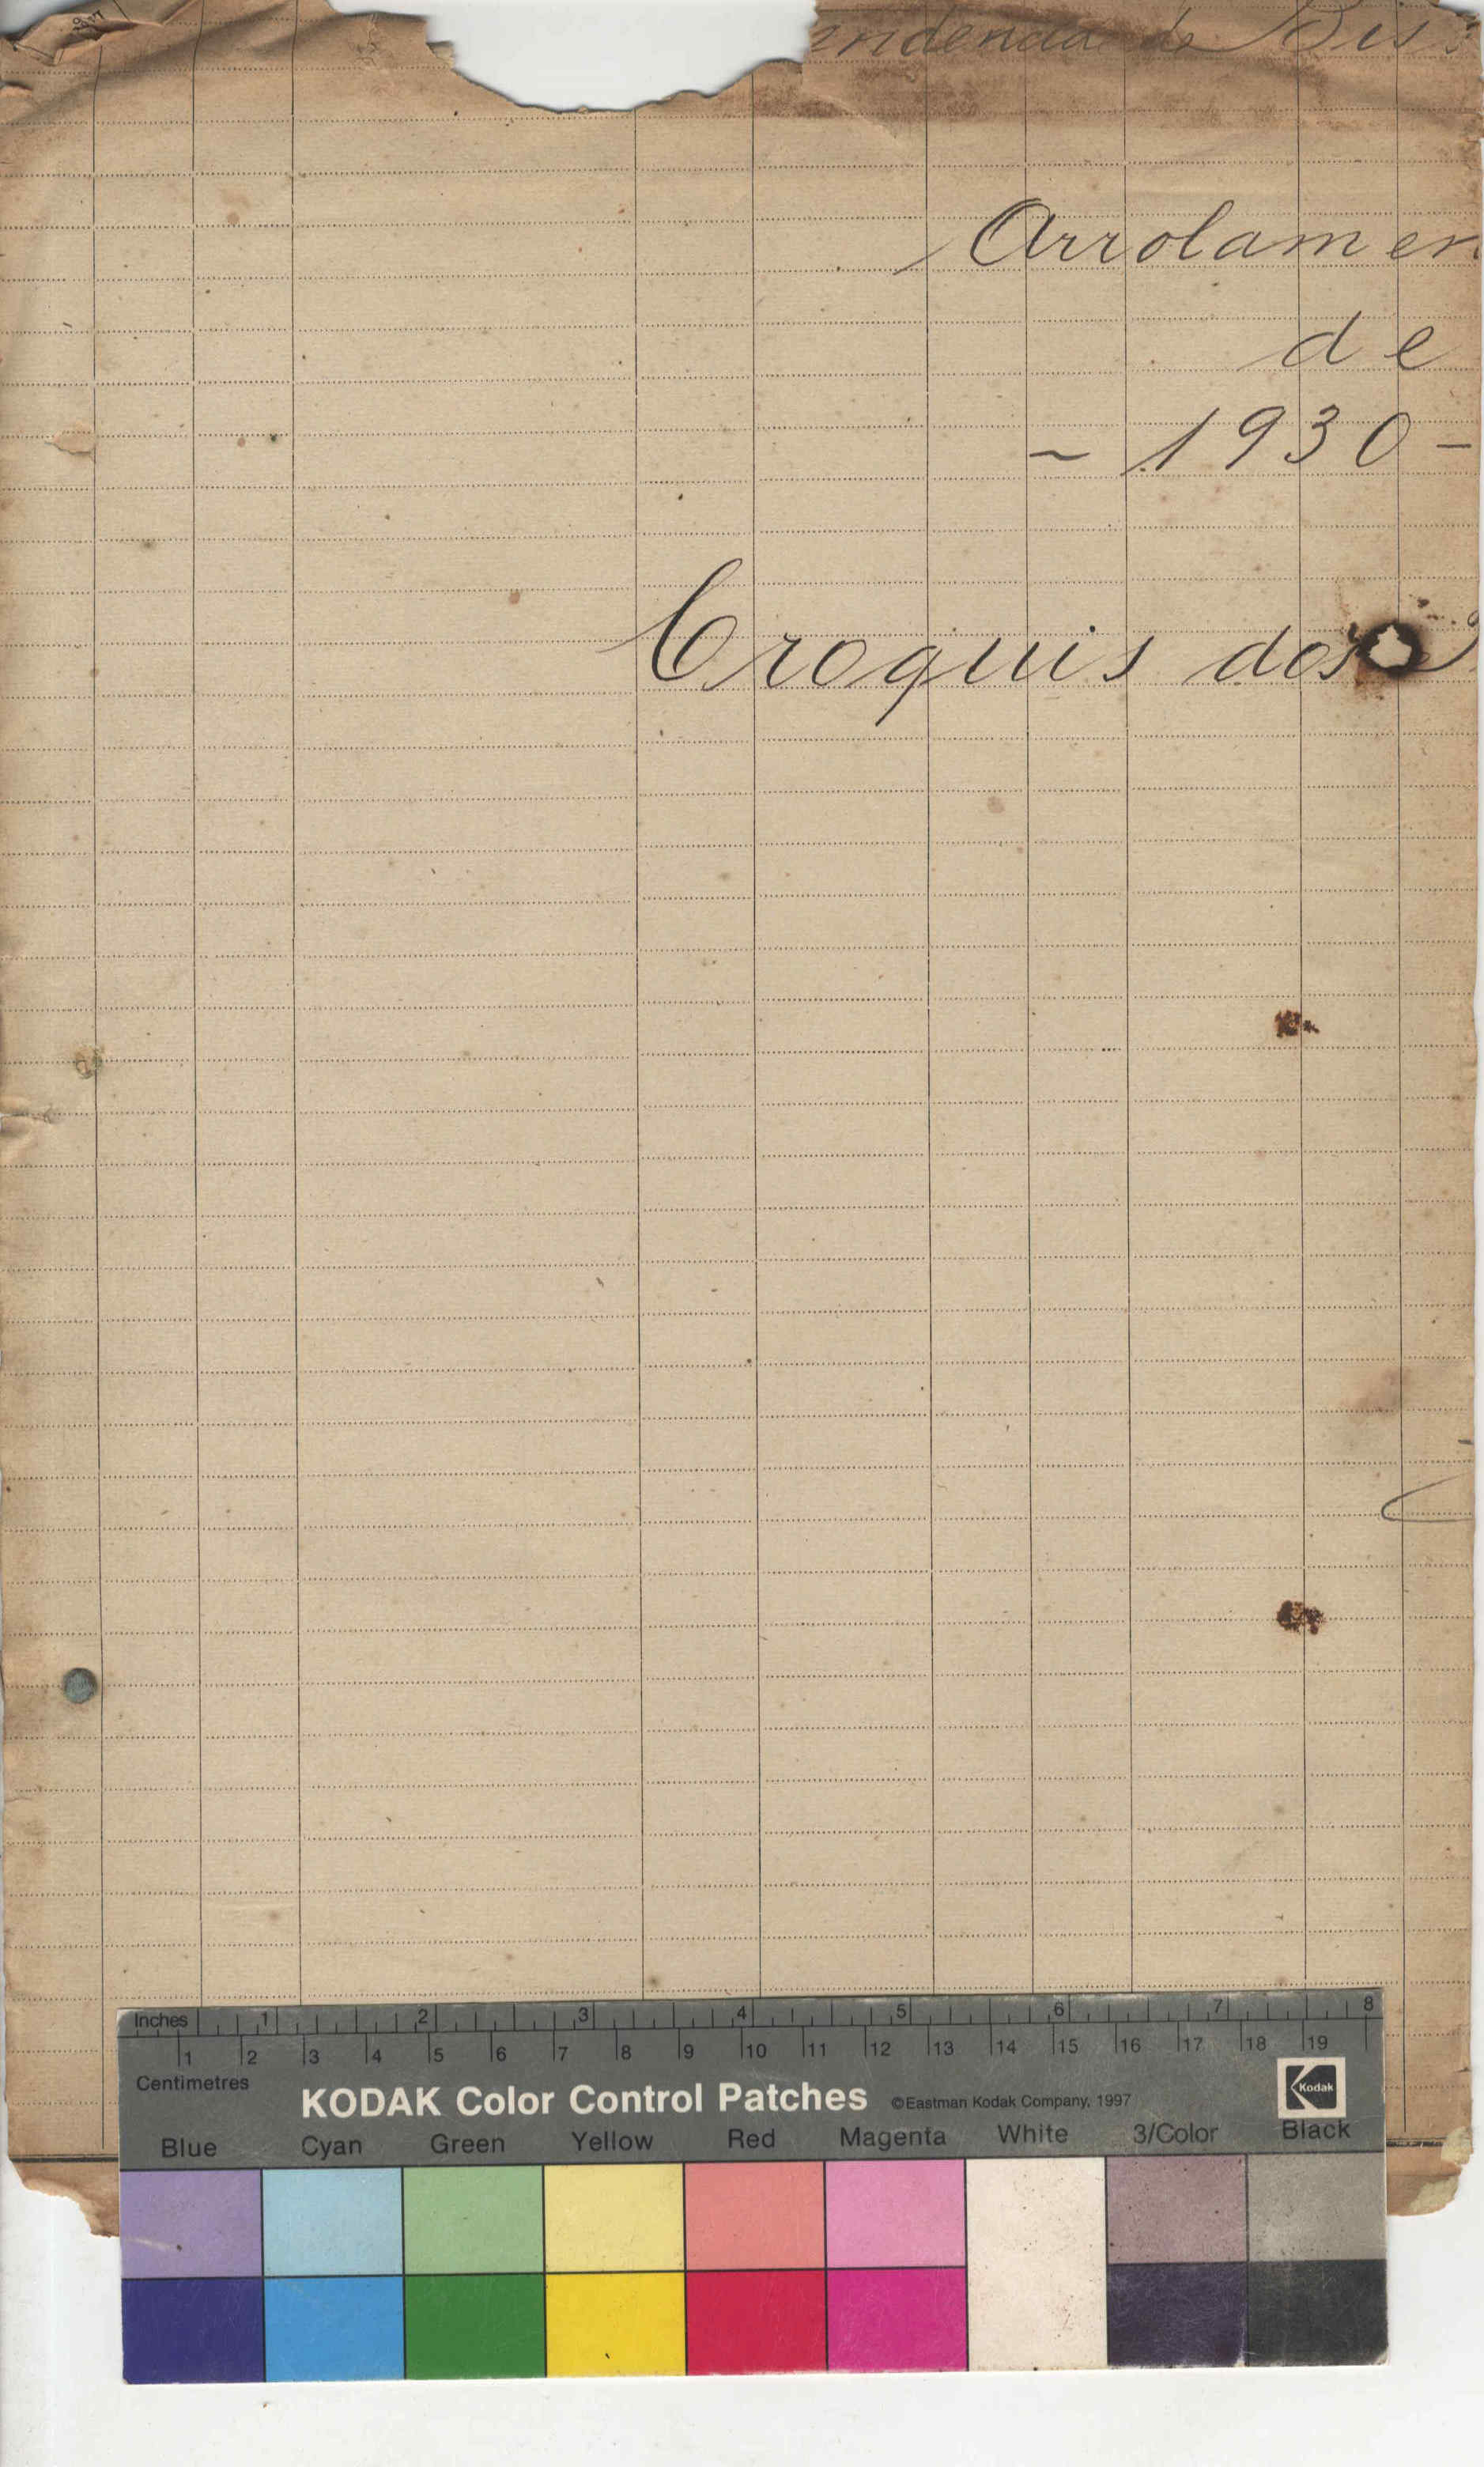 endencia de Bis
Arrolamen
de
- 1930 -
Croquis dos
Inches 1 2 3 4 5 6 7 8
1 2 3 4 5 6 7 8 9 10 11 12 13 14 15 16 17 18 19
Centimetres
KODAK Color Control Patches ©Eastman Kodak Company, 1997 Kodak
Blue Cyan Green Yellow Red Magenta White 3/Color Black